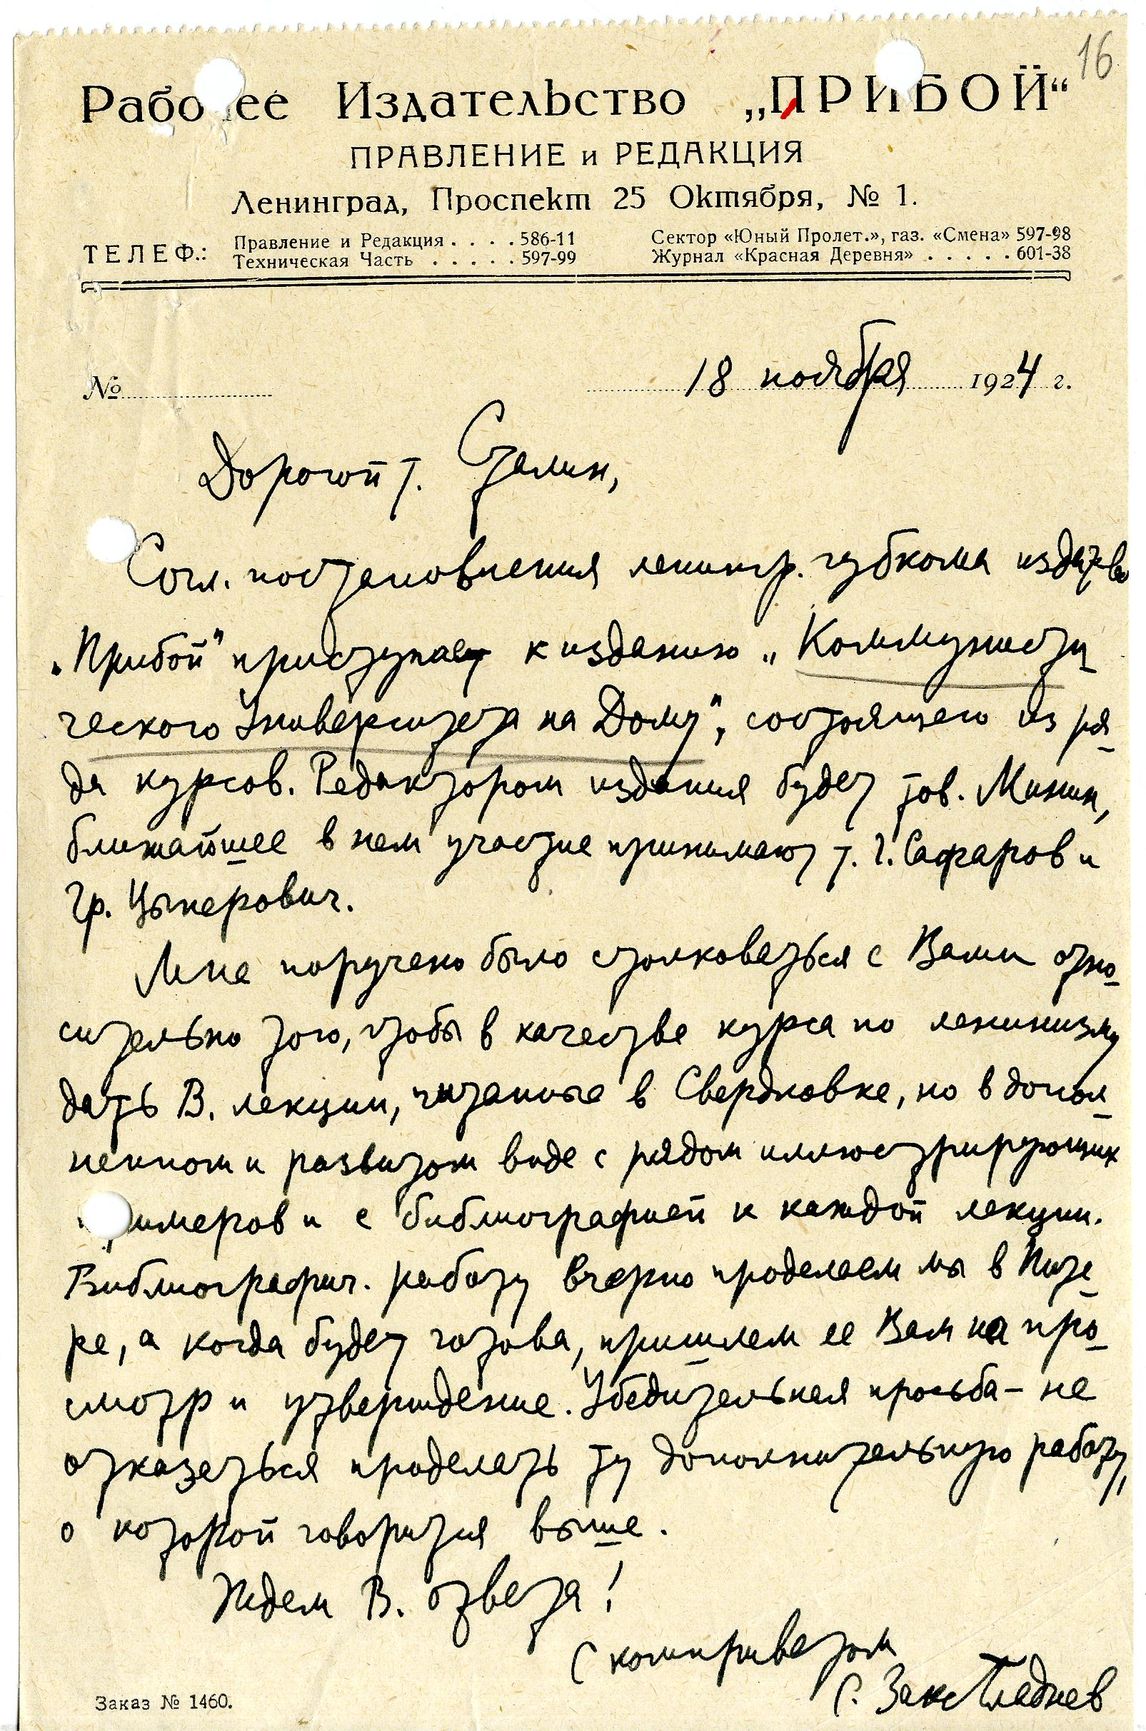 16
Рабочее Издательство „ПРИБОЙ“
ПРАВЛЕНИЕ и РЕДАКЦИЯ
Ленинград, Проспект 25 Октября, № 1.
ТЕЛЕФ.: Правление и Редакция . . . . 586-11 Сектор «Юный Пролет.», газ. «Смена» 597-98
Техническая Часть . . . . . 597-99 Журнал «Красная Деревня» . . . . . 601-38
№ 18 ноября 1924 г.
Дорогой т. Сталин,
Согл. постановления ленингр. губкома издат-во
„Прибой“ приступает к изданию „Коммунисти
ческого Университета на Дому“, состоящего из ря-
да курсов. Редактором издания будет тов. Минин,
ближайшее в нем участие принимают т. Г. Сафаров и
Гр. Цыперович.
Мне поручено было столковаться с Вами отно-
сительно того, чтобы в качестве курса по ленинизму
дать В. лекции, читанные в Свердловке, но в допол-
ненном и развитом виде с рядом иллюстрирующих
примеров и с библиографией к каждой лекции.
Библиографич. работу вчерне проделаем мы в Пите-
ре, а когда будет готова, пришлем ее Вам на про-
смотр и утверждение. Убедительная просьба – не
отказаться проделать ту дополнительную работу,
о которой говорится выше.
Ждем В. ответа!
С комприветом
С. Закс Гладнев
Заказ № 1460.